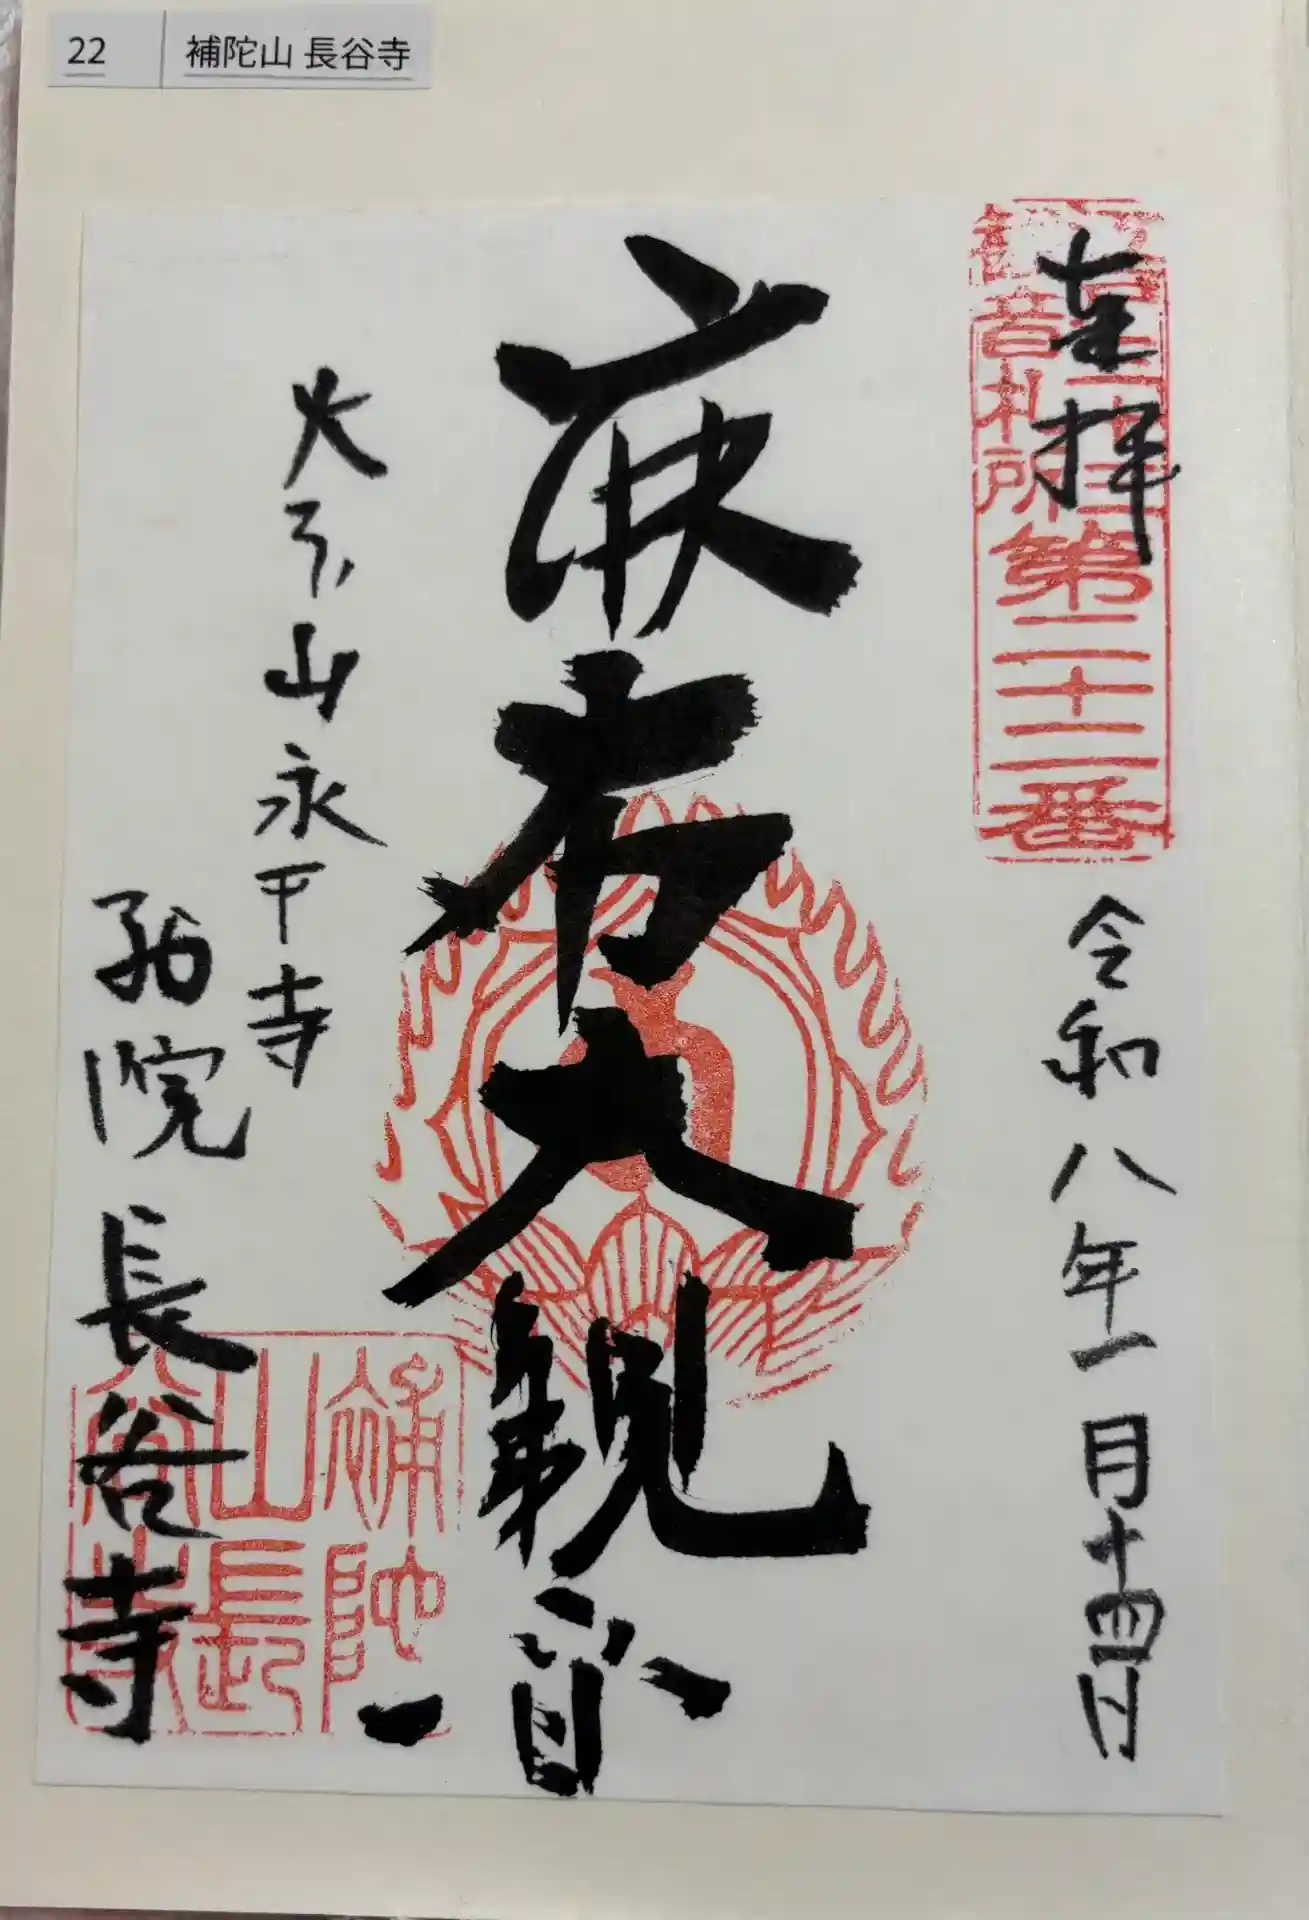 22 補陀山 長谷寺
奉拝
江戸三十三
観音札所
第二十二番
令和八年一月十四日
麻布大観音
大本山永平寺
別院
長谷寺
補陀
山長
谷寺